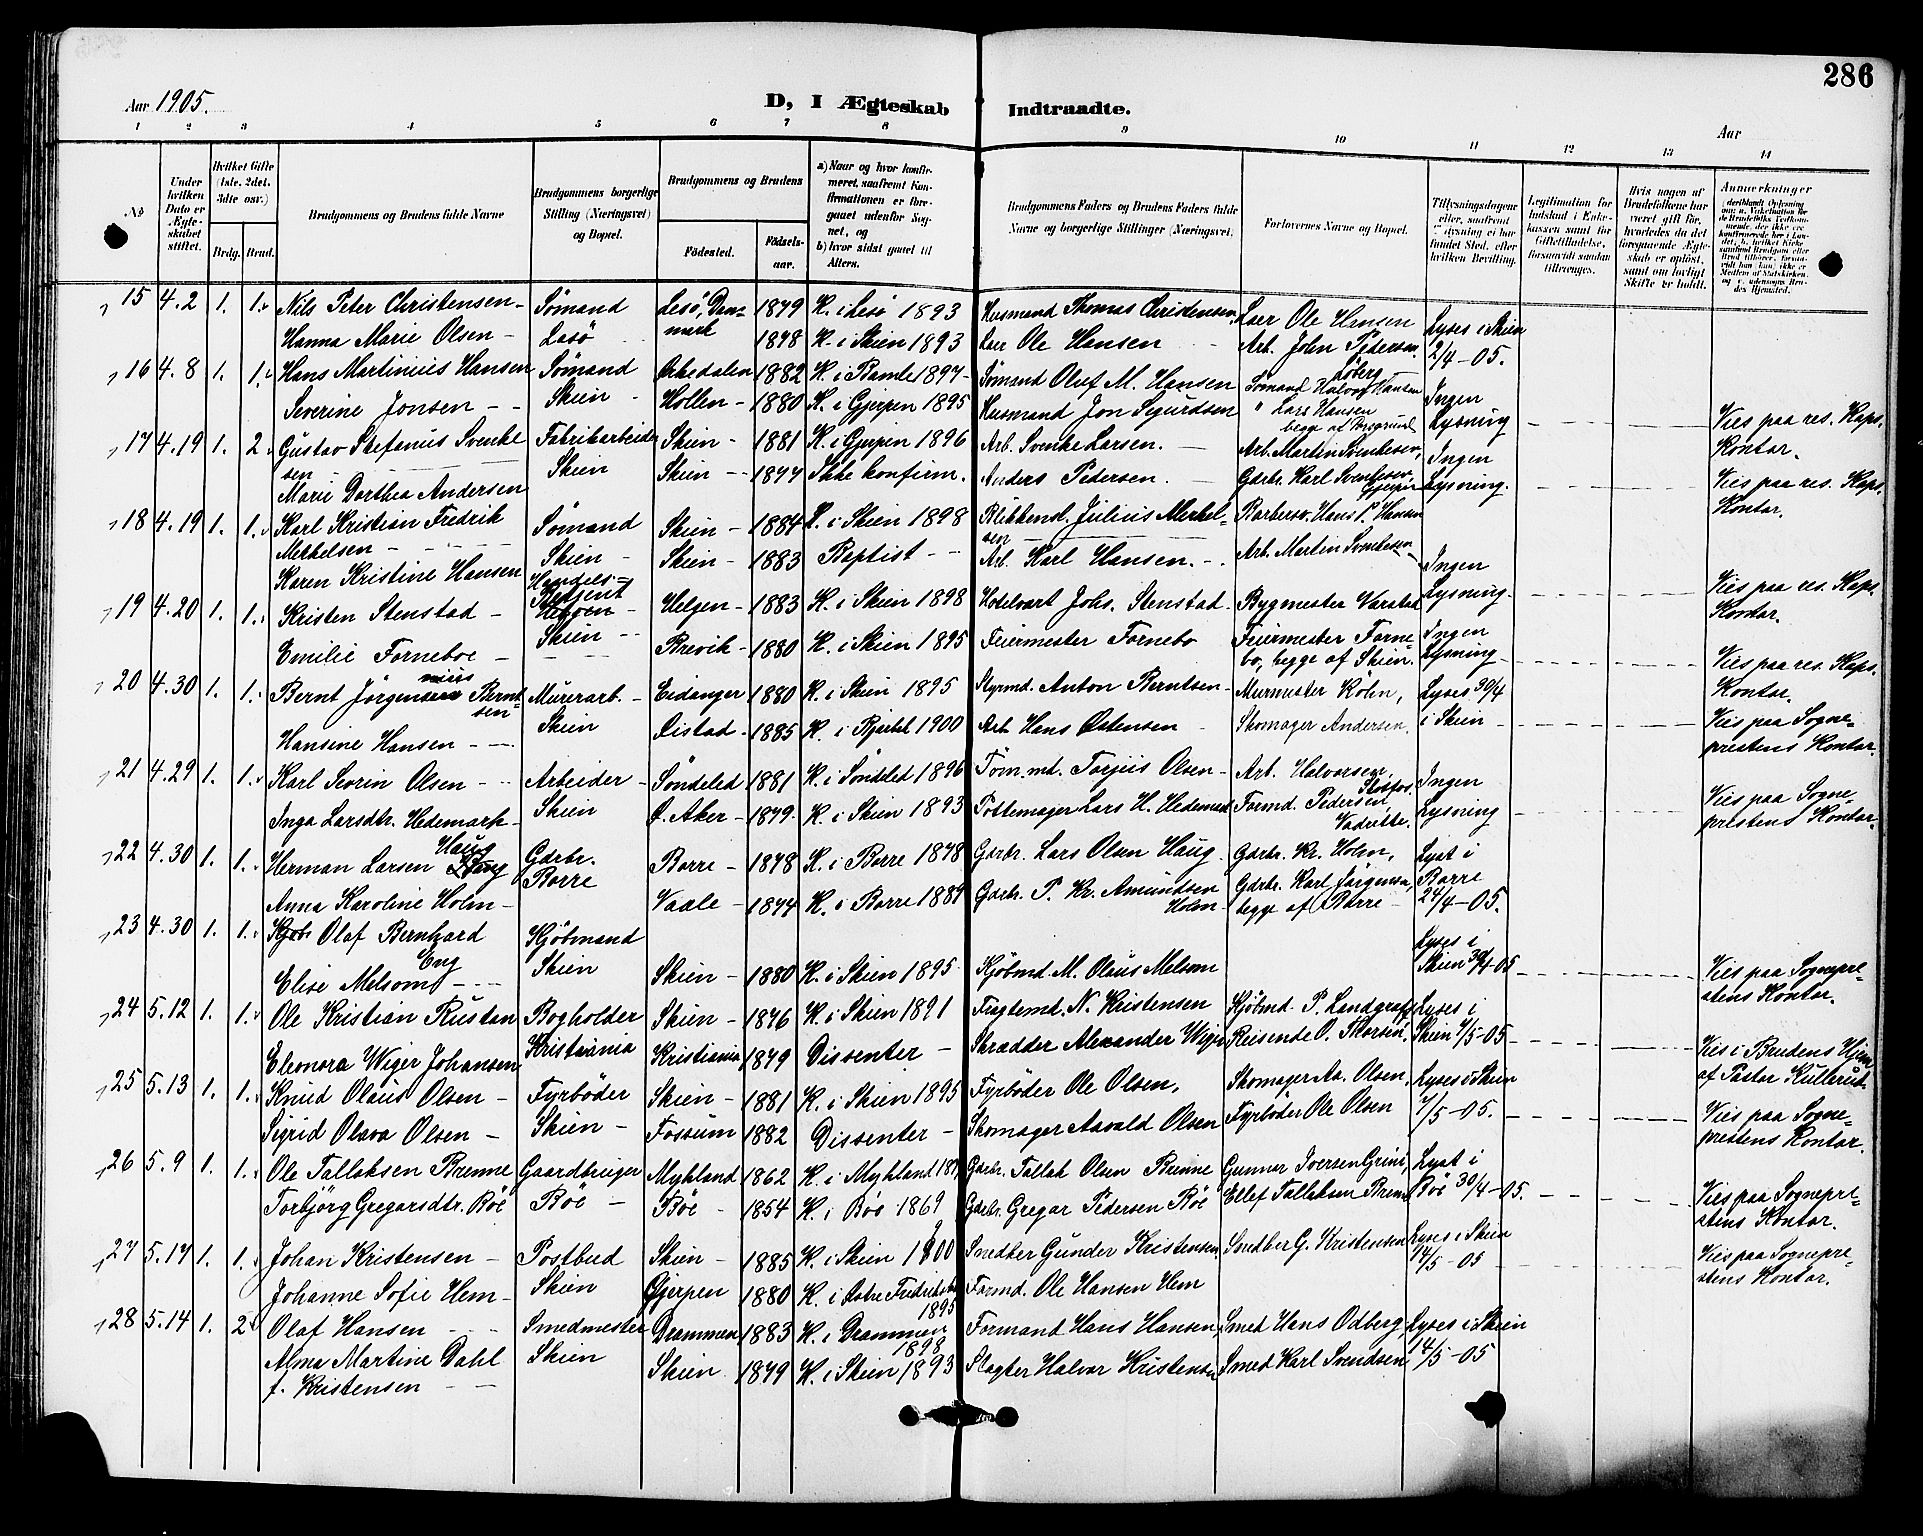 286
Aar 1905.
D, I Ægteskab Indtraadte.
Aar
1 2 3 4 5 6 7 8 9 10 11 12 13 14
No
Under hvilken Dato er Ægteskabet stiftet.
Hvilket Gifte (1ste, 2det, 3die osv.)
Brdg. Brud.
Brudgommens og Brudens fulde Navne
Brudgommens borgerlige Stilling (Næringsvei) og Bopæl.
Brudgommens og Brudens
Födested. Födselsaar.
a) Naar og hvor konfirmeret, saafremt Konfirmationen er foregaaet udenfor Sognet, og
b) hvor sidst gaaet til Alters.
Brudgommens Faders og Brudens Faders fulde Navne og borgerlige Stillinger (Næringsvei)
Forlovernes Navne og Bopæl.
Tillysningsdagene eller, saafremt Lysning ei har fundet Sted, efter hvilken Bevilling.
Legitimation for Indskud i Enkekassen samt for Giftetilladelse, forsaavidt saadan tiltrænges.
Hvis nogen af Brudefolkene har været gift før, hvorledes da det foregaaende Ægteskab er opløst, samt om lovligt Skifte er holdt.
Anmærkninger
15 4.2 1. 1. Nils Peter Christensen - Sömand Lesö, Dan- 1879 K. i Lesö 1893 Husmand Thomas Christensen Laer Ole Hansen Lyses i Skien
Hanna Marie Olsen - Lesö mark 1878 K. i Skien 1893 Laer Ole Hansen Arb. John Pedersen 2/4-05.
16 4.8 1. 1. Hans Martinius Hansen Sömand 1882 K. i Bamle 1897 Sömand Oluf M. Hansen Sömand Halvor Hansen Ingen
Severine Jonsen - - Skien - Hollen - 1880 K. i Gjerpen 1895 Husmand Jon Sigurdsen " Lars Hansen begge af Porsgrund Lysning Vies paa res. Kaps. Kontor.
17 4.19 1. 2 Gustav Stefanus Svenke Fabrikarbeider Skien - 1881 K. i Gjerpen 1896 Arb. Svenke Larsen. - Arb. Martin Svenkesen, Ingen
sen - Skien Skien - 1877 Ikke konfirm. Anders Pedersen. - Gdrbr. Karl Svenkesen Gjerpen Lysning. Vies paa res. Kaps. Kontor.
Marie Dorthea Andersen
18 4.19 1. 1. Karl Kristian Fredrik Sömand Skien - 1884 K. i Skien 1898 Blikkensl. Julius Merkel- Barbersv. Hans P. Hansen
Merkelsen - Skien - Skien - 1883 Baptist - - sen Arb. Karl Hansen. - Arb. Martin Svenkesen Ingen Lysning. Vies paa res. Kaps. Kontor.
Karen Kristine Hansen Handels-
19 4.20 1. 1. Kristen Stenstad - Skien - Helgen - 1883 K. i Skien 1898 Hotelvært Johs. Stenstad - Bygmester Varstad Ingen
Emilie Forneboe - Brevik - 1880 K. i Skien 1895 Feiermester Fornebo Feiermester Forne- bo, begge af Skien. Lysning Vies paa res. Kaps. Kontor.
20 4.30 1. 1. Bernt Jörgen nius Bernt- Murerarb. - Eidanger 1880 K. i Skien 1895 Styrmd. Anton Berntsen - Murmester Köhn, Lyses 30/4
sen Skien
Hansine Hansen - - 1885 K. i 1900 Arb. Hans Ostensen - Skomager Andersen. i Skien - Vies paa Sogne- prestens Kontor.
21 4.29 1. 1. Karl Severin Olsen - - Arbeider - Söndeled 1881 K. i Söndeled 1896 Töm.md. Torjus Olsen - Arb. Halvorsen, Klosfos. Ingen
Inga Larsdtr. Hedemark - Skien Ø. Aker - 1879. K. i Skien 1893 Pottemager Lars H. Hedemark Formd. Pedersen, Vadrette. Lysning Vies paa Sogne- prestens Kontor.
22 4.30 1. 1. Herman Larsen Haug Gdrbr. Borre Borre - 1878 K. i Borre 1878 Gdrbr. Lars Olsen Haug - Gdrbr. Kr. Holm, Lyst i
Anna Karoline Holm - Vaale - 1874 K. i Borre 1889 Gdrbr. P. Kr. Amundsen Holm - Gdrbr. Karl Jörgensen, begge af Borre - Borre 24/4-05.
23 4.30 1. 1. Olaf Bernhard Eng Kjöbmand Lyses i
Elise Melsom - - - Skien Skien - 1880 K. i Skien 1895 Kjöbmd. M. Olaus Melsom Skien 30/4-05 Vies paa Sognepre- stens Kontor.
24 5.12 1. 1. Ole Kristian Rustan Bogholder Skien - 1876 K. i Skien 1891 Fragtemd. N. Kristensen Kjöbmd. P. Landgraff Lyses i
Eleonora Wiger Johansen Kristiania Kristiania 1879 Dissenter - Skrædder Alexander Wiger Reisende O. Thorsen Skien 7/5-05 Vies i Brudens Hjem af Pastor Kullerud.
25 5.13 1. 1. Knud Olaus Olsen - Fyrböder Skien - 1881 K. i Skien 1895 Fyrböder Ole Olsen, Skomager Aa. Olsen, Lyses i Skien
Sigrid Olava Olsen - Skien - Fossum 1882 Dissenter - Skomager Aavald Olsen Fyrböder Ole Olsen 7/5-05. Vies paa Sogne- prestens Kontor.
26 5.9 1. 1. Ole Tallaksen Brenne Gaardbruger Mykland 1862 K. i Mykland Gdrbr. Tallak Olsen Brenne Gunnar Iversen Grini, Lyst i
Torbjörg Gregarsdtr. Böe Böe - Böe - 1854 K. i Böe 1869 Gdrbr. Gregar Pedersen Böe Ellef Tallaksen Bren Böe 30/4-05. Vies paa Sognepre- stens Kontor.
27 5.14 1. 1. Johan Kristensen - Postbud Skien - 1885 K. i Skien 1900 Snedker Gunder Kristensen Snedker G. Kristensen Lyses i Skien
Johanne Sofie Hem - Skien Gjerpen 1880 K. i 1895 Formd. Ole Hansen Hem 14/5-05 Vies paa Sognepre- stens Kontor.
28 5.14 1. 2 Olaf Hansen - Smedmester Drammen 1883 K. i Drammen 1898 Formand Hans Hansen, Smed Hans Odberg, Lyses i Skien
Alma Martine Dahl Skien Skien 1879 K. i Skien 1893 Slagter Halvor Kristensen Smed Karl Svendsen 14/5-05
f. Kristensen - -